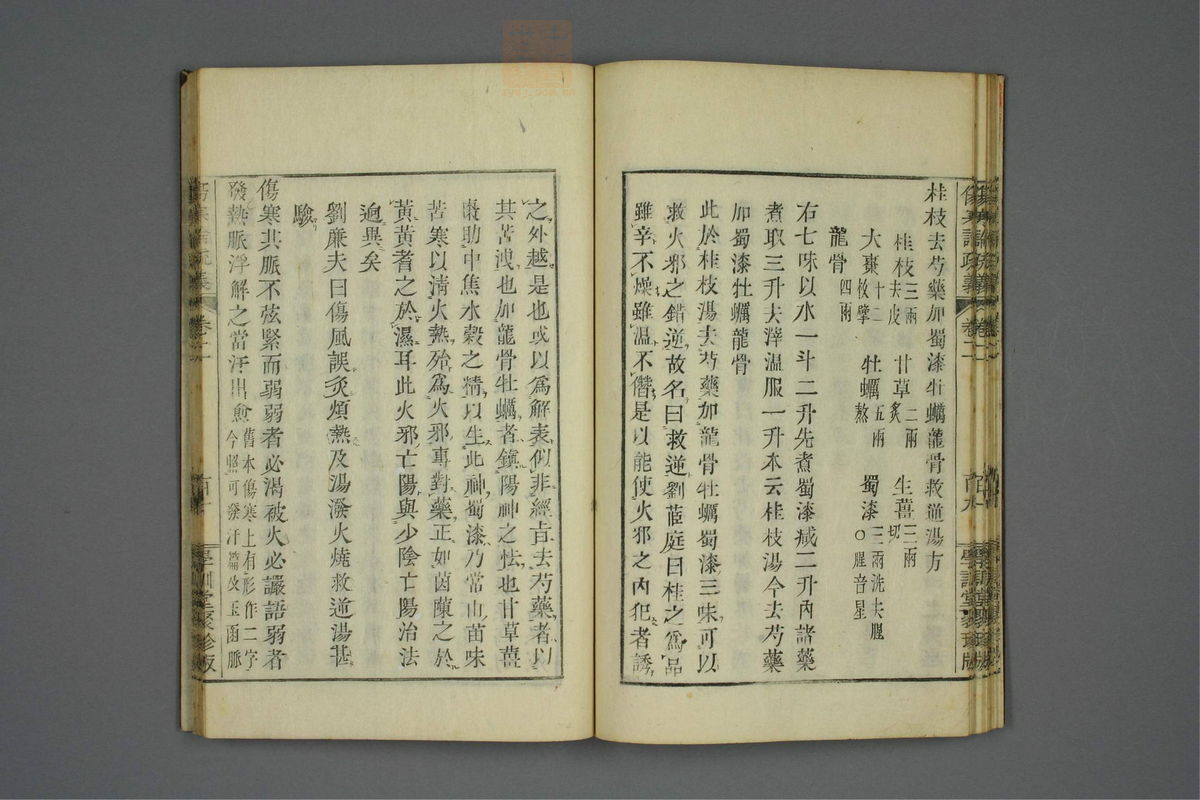 桂枝去芍藥加蜀漆牡蠣龍骨救逆湯方
桂枝三兩去皮 甘草二兩炙 生薑三兩切
大棗十二枚擘 牡蠣五兩熬 蜀漆三兩洗去腥○腥音星
龍骨四兩
右七味以水一斗二升先煮蜀漆減二升內諸藥
煮取三升去滓溫服一升本云桂枝湯今去芍藥
加蜀漆牡蠣龍骨
此於桂枝湯去芍藥加龍骨牡蠣蜀漆三味可以
救火邪之錯逆故名曰救逆劉茝庭曰桂之為品
雖辛不燥雖溫不僭是以能使火邪之內犯者誘
之外越是也或以為解表似非經旨去芍藥者以
其苦洩也加龍骨牡蠣者鎮陽神之怯也甘草薑
棗助中焦水穀之精以生此神蜀漆乃常山苗味
苦寒以淸火熱殆為火邪專對藥正如茵蔯之於
黃黃耆之於濕耳此火邪亡陽與少陰亡陽治法
逈異矣
劉廉夫曰傷風誤灸煩熱及湯潑火燒救逆湯甚
驗
傷寒其脈不弦緊而弱弱者必渴被火必讝語弱者
發熱脈浮解之當汗出愈舊本傷寒上有形作二字今照可發汗篇及玉函脈
傷寒論疏義 卷二 百九 學訓堂聚珍版
傷寒論疏義 卷二 百十 學訓堂聚珍版